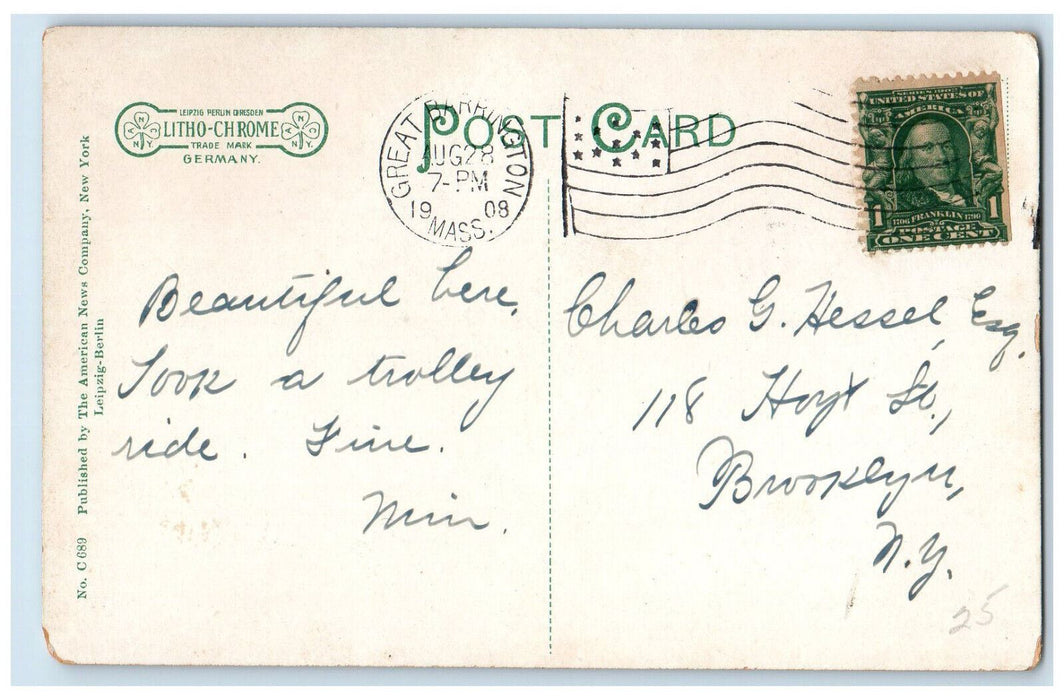 POST CARD
LEIPZIG BERLIN DRESDEN
LITHO-CHROME
TRADE MARK
GERMANY.
GREAT BARRINGTON
AUG 28
7-PM
19 08
MASS.
UNITED STATES OF
AMERICA
1 1
1706 FRANKLIN 1790
POSTAGE
ONE CENT
No. C 689 Published by The American News Company, New York
Leipzig-Berlin
Beautiful here.
Took a trolley
ride. Fine.
Min.
Charles G. Hessel, Esq.
118 Hoyt St.,
Brooklyn,
N.Y.
25